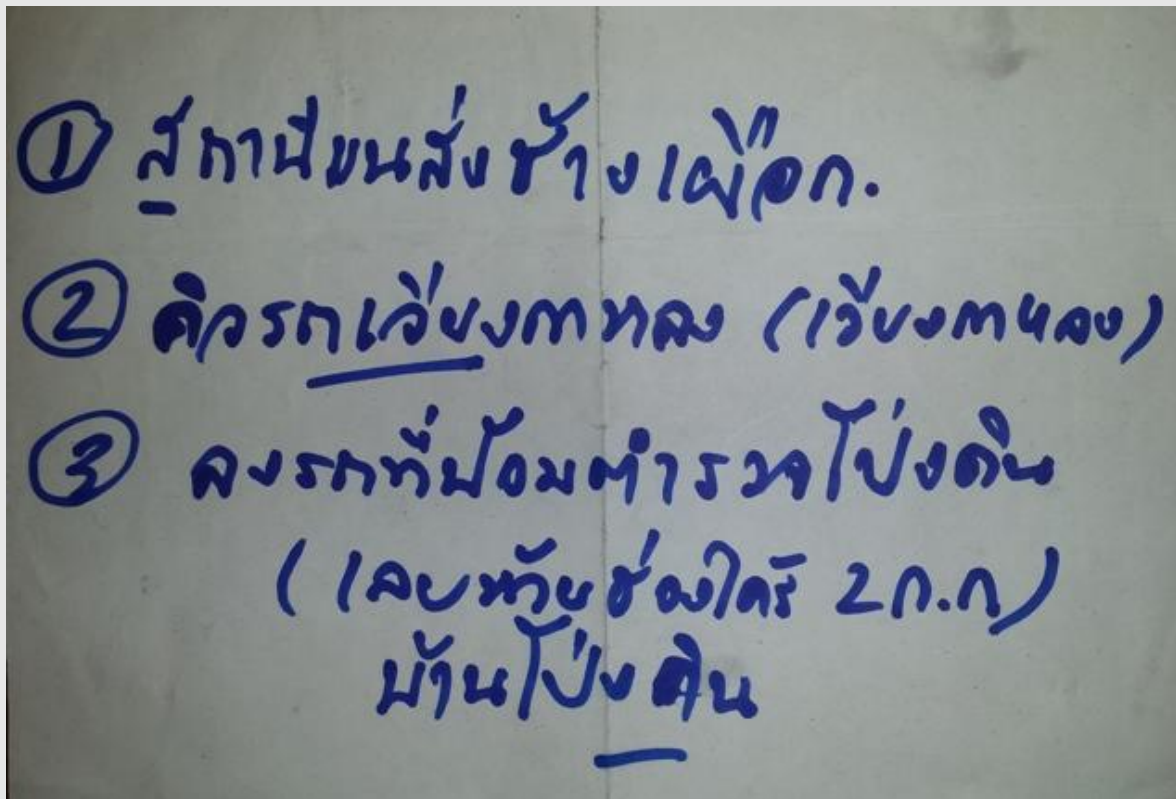 ① สถานีขนส่งช้างเผือก.
② คิวรถเวียงกาหลง (เวียงกาหลง)
③ ลงรถที่ป้อมตำรวจโป่งดิน
(เลยห้วยช่องใคร้ 2 ก.ก)
บ้านโป่งดิน